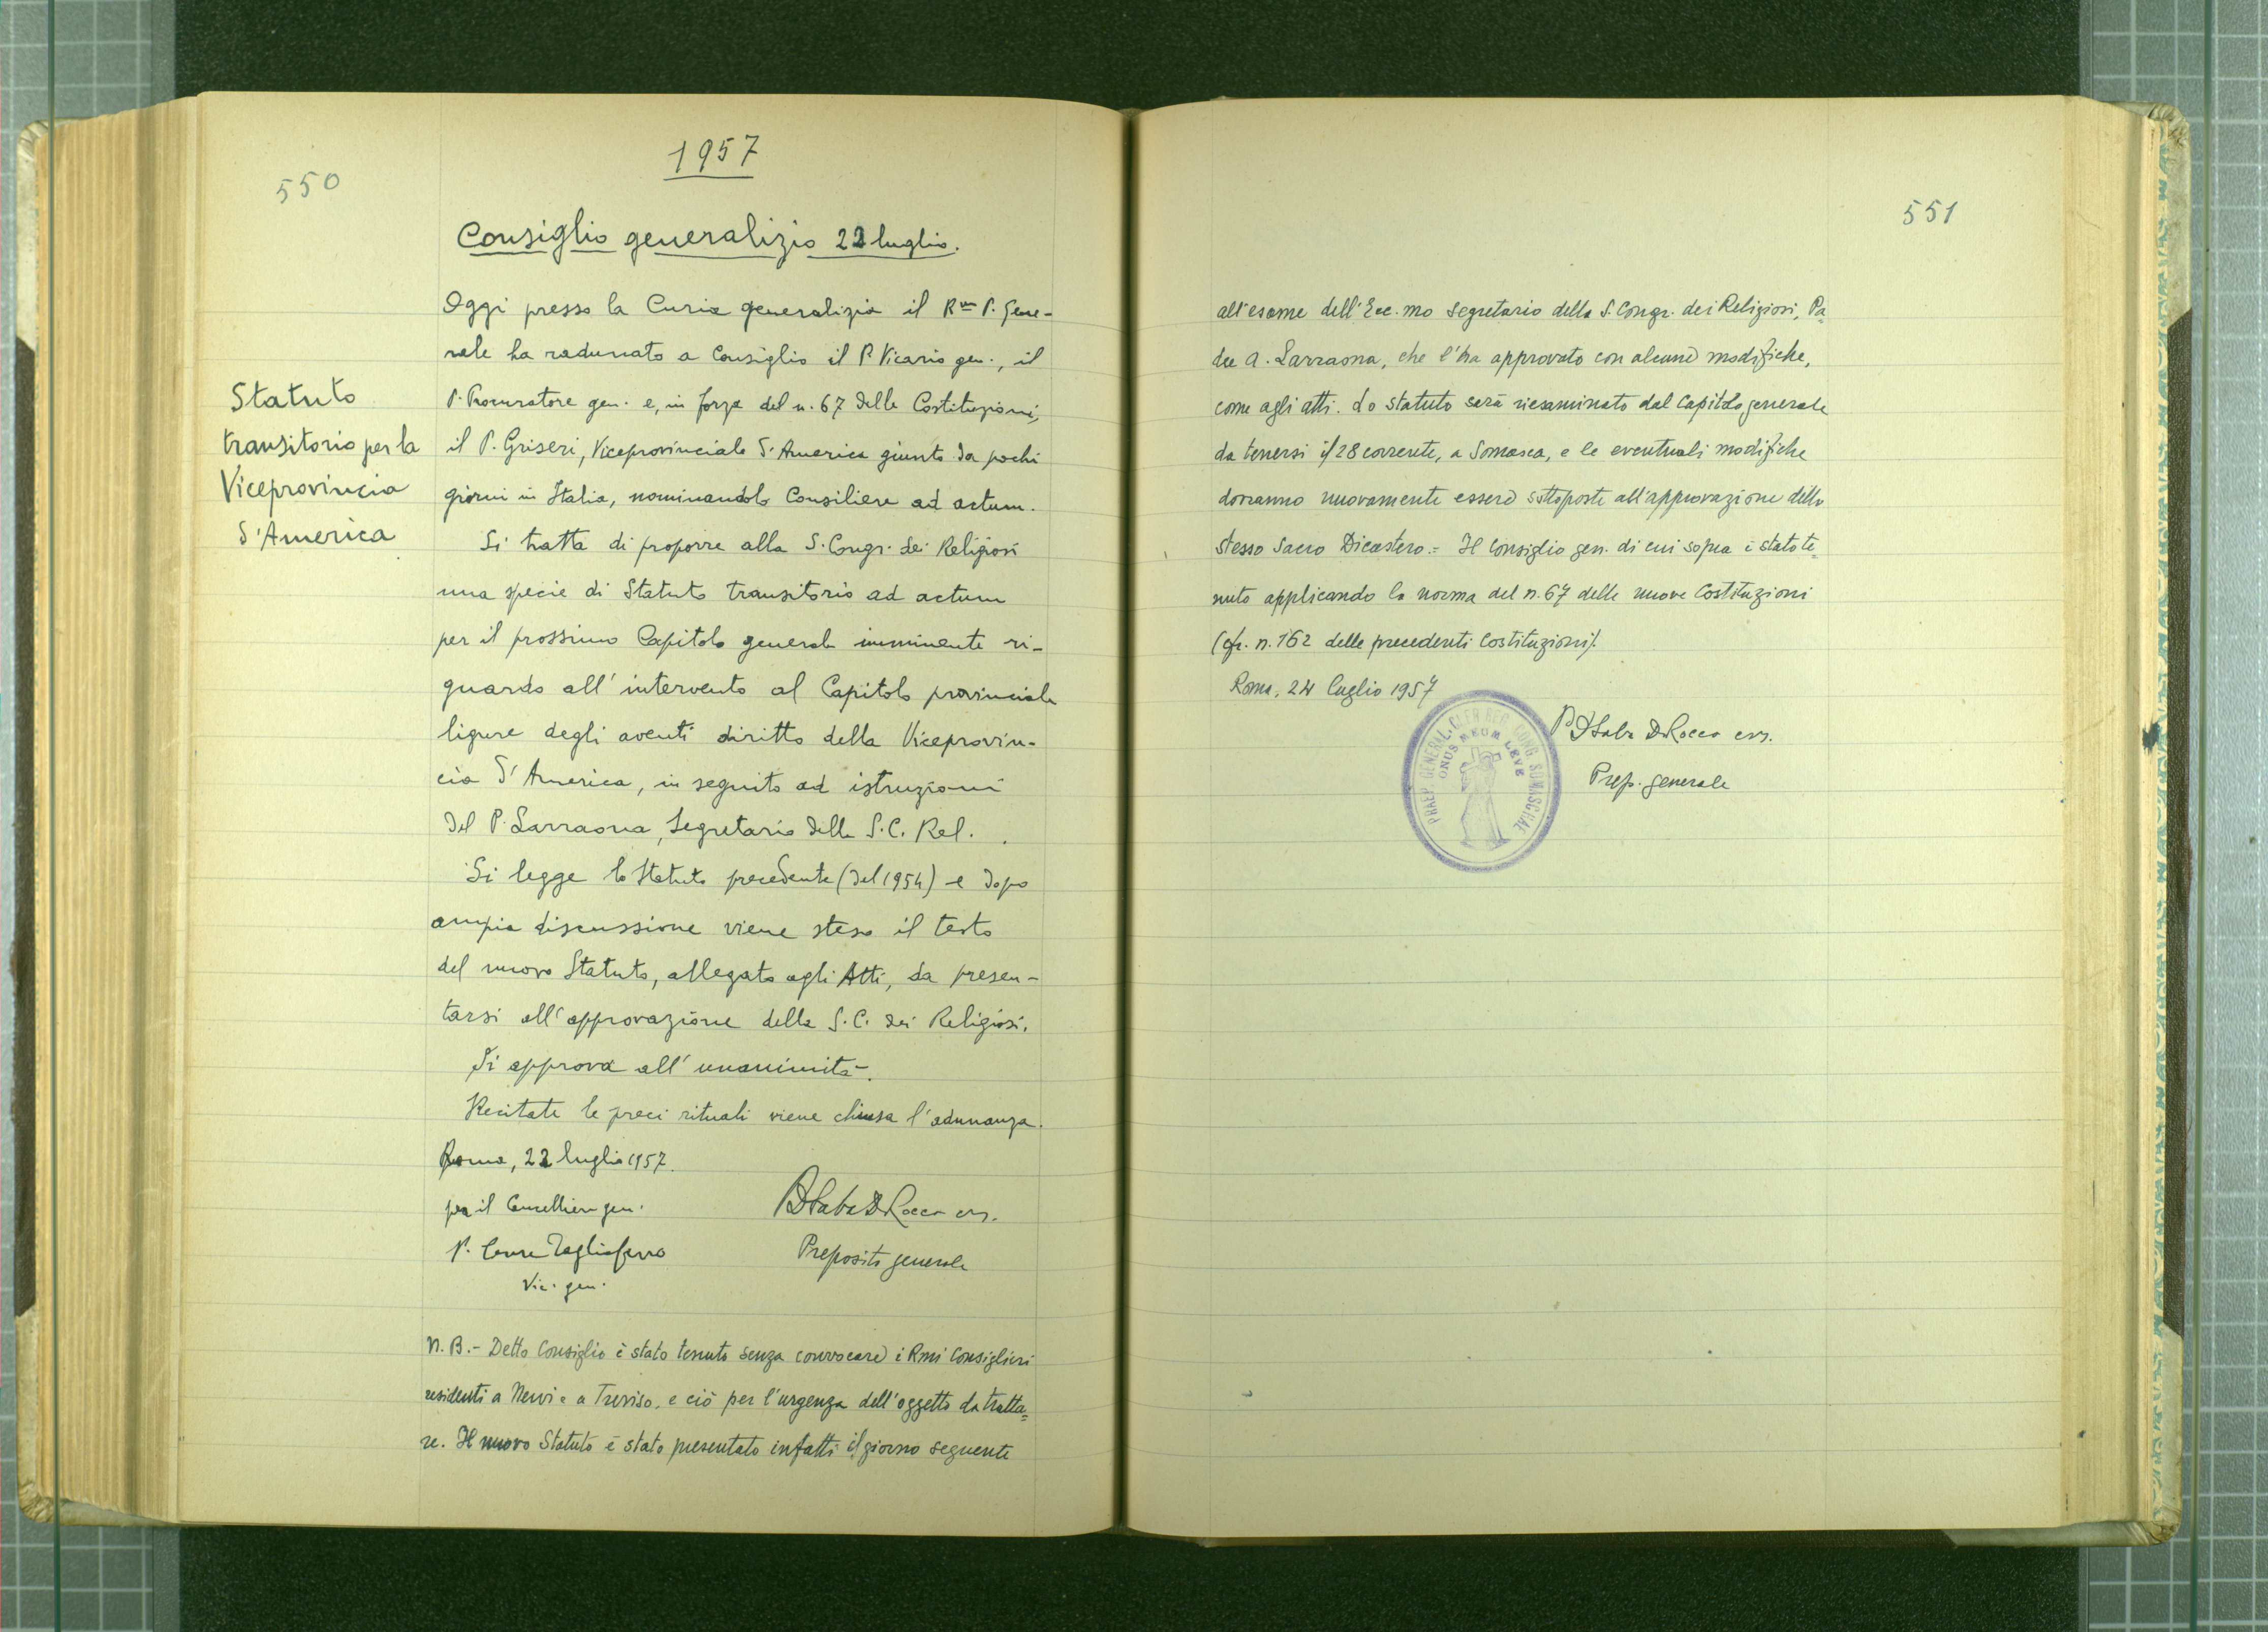 550
1957
Consiglio generalizio 22 luglio.
Statuto
transitorio per la
Viceprovincia
d'America
Oggi presso la Curia generalizia il Rmo P. Gene-
rale ha radunato a Consiglio il P. Vicario gen., il
P. Procuratore gen. e, in forza del n. 67 delle Costituzioni,
il P. Griseri, Viceprovinciale d'America giunto da pochi
giorni in Italia, nominandolo Consiliere ad actum.
Si tratta di proporre alla S. Congr. dei Religiosi
una specie di Statuto transitorio ad actum
per il prossimo Capitolo generale imminente ri-
guardo all'intervento al Capitolo provinciale
ligure degli aventi diritto della Viceprovin-
cia d'America, in seguito ad istruzioni
del P. Larraona, Segretario della S.C. Rel.
Si legge lo Statuto precedente (del 1954) e dopo
ampia discussione viene steso il testo
del nuovo Statuto, allegato agli Atti, da presen-
tarsi all'approvazione della S.C. dei Religiosi.
Si approva all'unanimità.
Recitate le preci rituali viene chiusa l'adunanza.
Roma, 22 luglio 1957.
per il Cancelliere gen.
P. Cesare Tagliaferro
Vic. gen.
P Saba De Rocco crs.
Preposito generale
N.B.- Detto Consiglio è stato tenuto senza convocare i Rmi Consiglieri
residenti a Nervi e a Treviso, e ciò per l'urgenza dell'oggetto da tratta=
re. Il nuovo Statuto è stato presentato infatti il giorno seguente
551
all'esame dell'Ecc.mo Segretario della S. Congr. dei Religiosi, Pa=
dre A. Larraona, che l'ha approvato con alcune modifiche,
come agli atti. Lo statuto sarà riesaminato dal Capitolo generale
da tenersi il 28 corrente, a Somasca, e le eventuali modifiche
dovranno nuovamente essere sottoposte all'approvazione dello
stesso Sacro Dicastero.= Il Consiglio gen. di cui sopra è stato te=
nuto applicando la norma del n. 67 delle nuove Costituzioni
(cfr. n. 162 delle precedenti Costituzioni).
Roma, 24 luglio 1957
P Saba De Rocco crs.
Prep. generale
PRAEP. GENERAL. CLER. REG. CONG. SOMASCHAE
ONUS MEUM LEVE